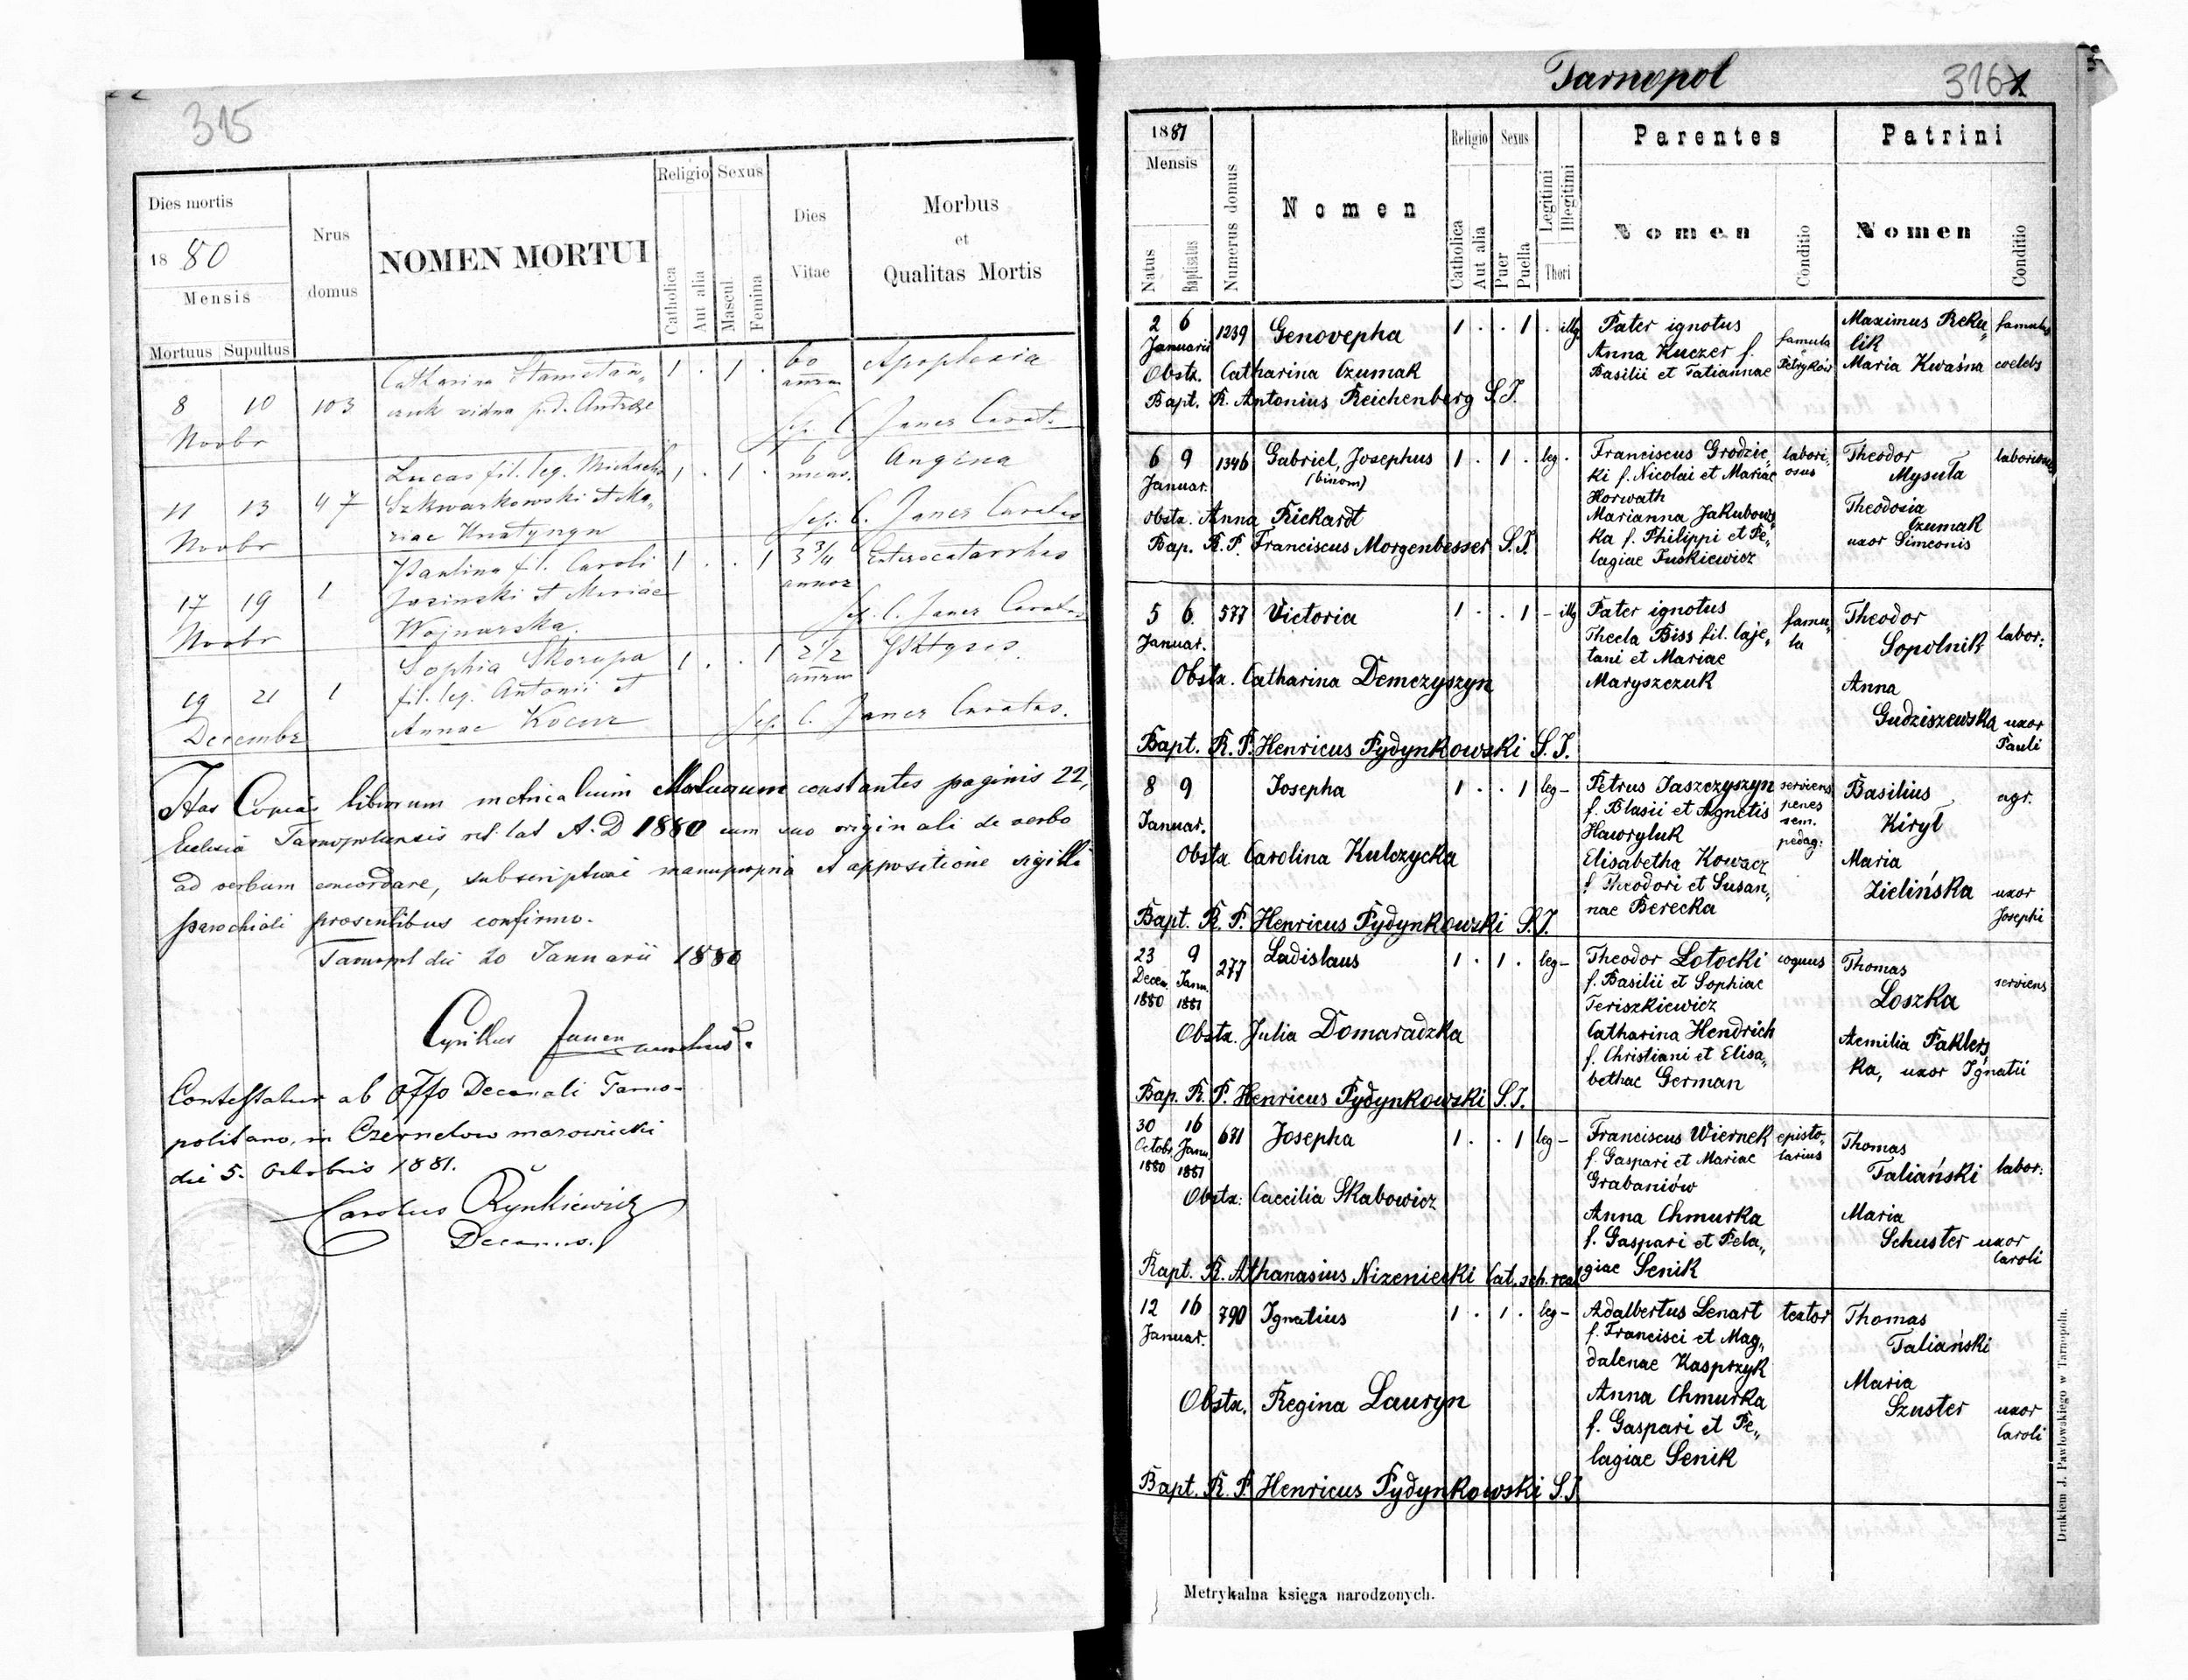 315
Dies mortis
1880
Mensis
Mortuus Supultus
Nrus
domus
NOMEN MORTUI
Religio
Catholica
Aut alia
Sexus
Mascul.
Femina
Dies
Vitae
Morbus
et
Qualitas Mortis
8 10 103
Novbr
Catharina
vidua p. d.
1 . 1 .
60
Apoplexia
Sep. C. Janer Curat.
11 13 47
Novbr
Lucas fil. leg. Michaelis
Szkwarkowski et Ma„
riae
1 . 1 .
6
mens.
Angina
Sep. C. Janer Curatus
17 19 1
Novbr
Paulina f. l. Caroli
Jasinski et Mariae
Wojnarska.
1 . . 1
3 3/4
annor
Enterocatarrhus
Sep. C. Janer Curatus
19 21 1
Decembr
Sophia Skorupa
fil. leg. Antonii et
Annae Kocur
1 . . 1
2 1/2
Sep. C. Janer Curatus.
Has Copias librorum metricalium Mortuorum constantes paginis 22,
Ecclesiä Tarnopoliensis rit. lat A. D 1880 cum suo originali de verbo
ad verbum concordare, subscriptione manupropria et appositione sigilli
parochiali praesentibus confirmo.
Tarnopol die 20 Januarii 1880
Cyrillus Janer
Contestatur ab Offo Decanali Tarno-
politano, in Czernelow mazowiecki
die 5. Octobris 1881.
Carolus Rynkiewicz
Decanus.
Tarnopol
316
1881
Mensis
Natus
Baptisatus
Numerus domus
Nomen
Religio
Catholica
Aut alia
Sexus
Puer
Puella
Legitimi
Illegitimi
Thori
Parentes
Nomen
Conditio
Patrini
Nomen
Conditio
2 6 1239 Genovepha 1 . . 1 . illg.
Januarii
Obstx. Catharina Czumak
Bapt. R. Antonius Reichenberg S.J.
Pater ignotus
Anna Kuczer f.
Basilii et Tatiannae
famula
Petryków
Maximus Reku„
lik
famulus
Maria Kwaśna coelebs
6 9 1346 Gabriel, Josephus 1 . 1 . leg .
Januar. (binom)
Obstx. Anna Rickardt
Bap. R. P. Franciscus Morgenbesser S.J.
Franciscus Grodzic„
ki f. Nicolai et Mariae
Horwath
Marianna Jakubows„
ka f. Philippi et Pe„
lagiae Puskiewicz
labori„
osus
Theodor
Mysuła
laboriosus
Theodosia
Czumak
uxor Simeonis
5 6. 577 Victoria 1 . . 1 - illg
Januar.
Obstx. Catharina Demczyszyn
Bapt. R. P. Henricus Pydynkowski S.J.
Pater ignotus
Thecla Biss fil. Caje„
tani et Mariae
Maryszczuk
famu„
la
Theodor
Sopolnik labor:
Anna
Gudziszewska uxor
Pauli
8 9 Josepha 1 . . 1 leg -
Januar.
Obstx Carolina Kulczycka
Bapt. R. P. Henricus Pydynkowski S.J.
Petrus Jaszczyszyn
f. Blasii et Agnetis
Hawryluk
Elisabetha Kowacz
f. Theodori et Susan„
nae Berecka
serviens
penes
sem.
pedag:
Basilius
Kirył
agr.
Maria
Zielińska uxor
Josephi
23 9 277 Ladislaus 1 . 1 . leg -
Decem. Janu.
1880 1881
Obstx. Julia Domaradzka
Bap. R. P. Henricus Pydynkowski S.J.
Theodor Łotocki
f. Basilii et Sophiae
Teriszkiewicz
Catharina Hendrich
f. Christiani et Elisa„
bethae German
coquus
Thomas
Loszka
serviens
Aemilia Paklers„
ka, uxor Ignatii
30 16 671 Josepha 1 . . 1 leg -
Octobr. Janu.
1880 1881
Obstx: Caecilia Skabowicz
Bapt. R. Athanasius Nizeniecki Cat. sch. real
Franciscus Wiernek
f. Gaspari et Mariae
Grabaniów
Anna Chmurka
f. Gaspari et Pela„
giae Senik
episto„
larius
Thomas
Taliański labor:
Maria
Schuster uxor
Caroli
12 16 790 Ignatius 1 . 1 . leg -
Januar.
Obstx. Regina Lauryn
Bapt. R. P. Henricus Pydynkowski S.J.
Adalbertus Lenart
f. Francisci et Mag„
dalenae Kasprzyk
Anna Chmurka
f. Gaspari et Pe„
lagiae Senik
textor
Thomas
Taliański
Maria
Szuster uxor
Caroli
Metrykalna księga narodzonych.
Drukiem J. Pawłowskiego w Tarnopolu.